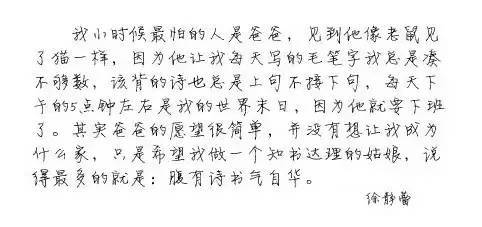 我小时候最怕的人是爸爸，见到他像老鼠见
了猫一样，因为他让我每天写的毛笔字我总是凑
不够数，该背的诗也总是上句不接下句，每天下
午的5点钟左右是我的世界末日，因为他就要下班
了。其实爸爸的愿望很简单，并没有想让我成为
什么家，只是希望我做一个知书达理的姑娘，说
得最多的就是：腹有诗书气自华。
徐静蕾